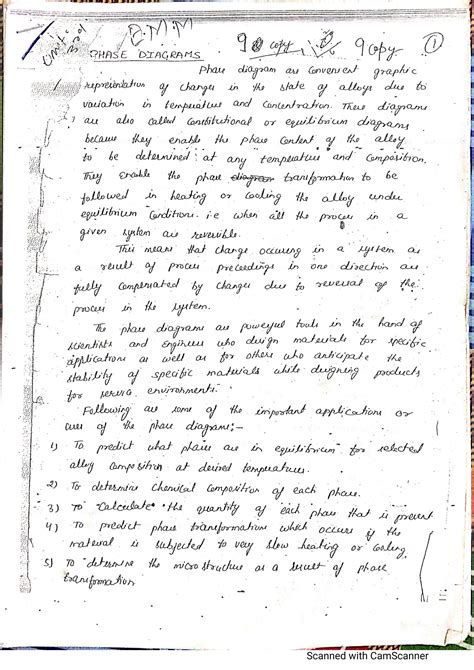 Unit:
D.M.M
90 copy
9 copy
1
PHASE DIAGRAMS
Phase diagram are Convenient graphic
representation of changes in the state of alloys due to
variation in temperature and Concentration. These diagrams
are also called Constitutional or equilibrium diagrams
because they enable the phase Content of the alloy
to be determined at any temperature and Composition.
They Enable the phase diagram transformation to be
followed in heating or Cooling the alloy under
equilibrium Conditions. i.e when all the process in a
given system are reversible.
This means that change occuring in a system as
a result of process preceedings in one direction are
fully Compensated by changes due to reversal of the
process in the system.
The phase diagrams are powerful tools in the hand of
scientists and engineers who design materials for specific
applications as well as for others who anticipate the
stability of specific materials while designing products
for service environments.
Following are some of the important applications or
uses of the phase diagrams:-
1) To predict what phases are in equilibrium for selected
alloy Composition at desired temperatures.
2) To determine Chemical Composition of each phase.
3) To Calculate the quantity of each phase that is present
4) To predict phase transformation which occurs if the
material is subjected to very slow heating or Cooling.
5) To determine the microstructure as a result of phase
transformation
Scanned with CamScanner